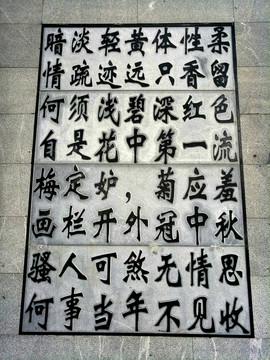 暗淡轻黄体性柔
情疏迹远只香留
何须浅碧深红色
自是花中第一流
梅定妒，菊应羞
画栏开外冠中秋
骚人可煞无情思
何事当年不见收